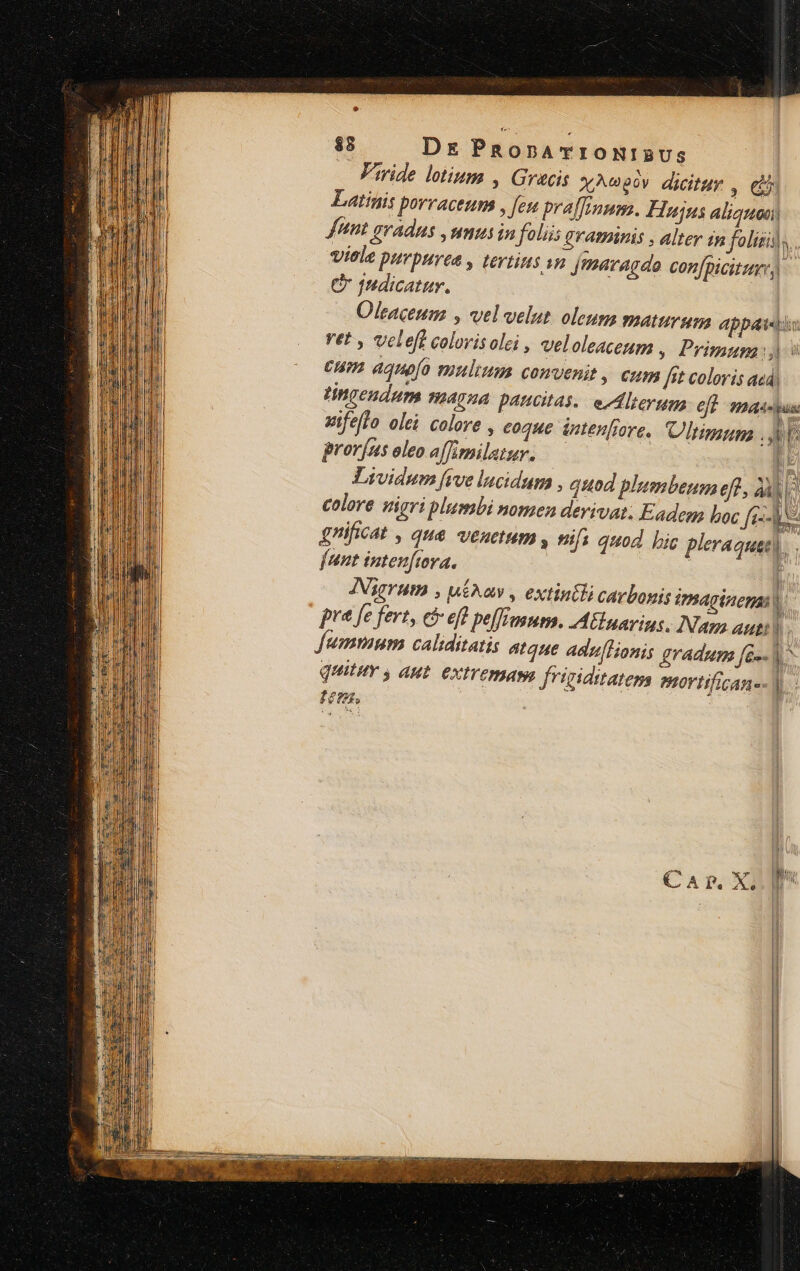 88 DE PROBATIONIBUS
Viride lotium , Græcis χλωρὸν dicitur , &
Latinis porraceum , ſeu praſſinum. Hujus aliquot
ſunt gradus , unus in foliis graminis , alter in foliis
viola purpurea , tertius in ſmaragdo conſpicitur,
& judicatur.
Oleaceum , vel velut oleum maturum appa-
ret , vel eſt coloris olei , vel oleaceum , Primum
cum aquoſo multum convenit , cum ſit coloris ad
tingendum magna paucitas. Alterum eſt ma-
nifeſto olei colore , eoque intenſiore. Ultimum
prorſus oleo aſſimilatur.
Lividum ſive lucidum , quod plumbeum eſt, à
colore nigri plumbi nomen derivat. Eadem hoc ſi-
gnificat , quæ venetum , niſi quod hic pleraque
ſunt intenſiora.
Nigrum , μέλαν , extincti carbonis imaginem
præ ſe fert, & eſt peſſimum. Actuarius. Nam aut
ſummum caliditatis atque aduſtionis gradum ſe-
quitur , aut extremam frigiditatem mortifican-
tem.
CAP. X.